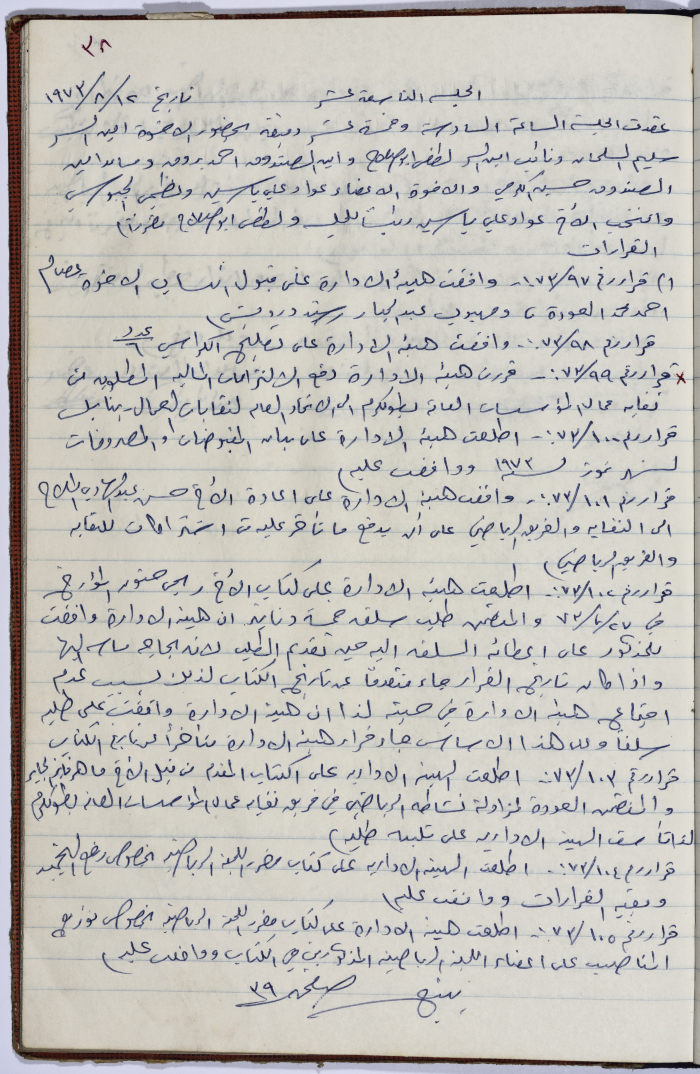 ٣٨
الجلسة التاسعة عشر تاريخ ١٩٧٣/٨/١٢
عقدت الجلسة الساعة السادسة وخمسة عشر دقيقة بحضور الاخوة امين السر
سليم السلمان ونائب امين السر لطفي ابو صلاح وامين الصندوق احمد بروق ومساعد امين
الصندوق حسين والاخوة الاعضاء عواد علي ياسين ونظمي الجيوسي
وانتخب الأخ عواد علي ياسين رئيساً للجلسة ولطفي ابو صلاح مقرراً
القرارات
١) قرار رقم ٧٣/٩٧ :- وافقت هيئة الادارة على قبول انتساب الاخوة
احمد محمد العودة ، وصهيوب عبد الجبار رشيد درويش
قرار رقم ٧٣/٩٨ :- وافقت هيئة الادارة على تصليح الكراسي عدد ٦
× قرار رقم ٧٣/٩٩ :- قررت هيئة الادارة دفع الالتزامات المالية المطلوبة من
نقابة عمال المؤسسات العامة بطولكرم الى الاتحاد العام لنقابات العمال - بنابلس
قرار رقم ٧٣/١٠٠ :- اطلعت هيئة الادارة على بيان المقبوضات والمصروفات
لشهر تموز لسنة ١٩٧٣ ووافقت عليه
قرار رقم ٧٣/١٠١ :- وافقت هيئة الادارة على اعادة الأخ حسن عبد الهادي
الى النقابة والفريق الرياضي على أن يدفع ما تأخر عليه من اشتراكات للنقابة
والفريق الرياضي
قرار رقم ٧٣/١٠٢ :- اطلعت هيئة الادارة على كتاب الأخ المؤرخ
في ٧٣/٧/٢٧ والمتضمن طلب سلفة خمسة دنانير ان هيئة الادارة وافقت
للمذكور على اعطائه السلفة اليه حين تقديم الطلب لانه بحاجة ماسه اليها
واذا كان تاريخ القرار جاء متقدماً عن تاريخ الكتاب لذلك بسبب عدم
اجتماع هيئة الادارة في حينه لذا ان هيئة الادارة وافقت على طلبه
سلفاً وعلى هذا الاساس جاء قرار هيئة الادارة متأخراً عن تاريخ الكتاب
قرار رقم ٧٣/١٠٣ :- اطلعت الهيئة الادارية على الكتاب المقدم من قبل الأخ ماهر
والمتضمن العودة لمزاولة نشاطه الرياضي في فريق نقابة عمال المؤسسات العامة بطولكرم
لذا تأسف الهيئة الادارية على تلبية طلبه
قرار رقم ٧٣/١٠٤ :- اطلعت الهيئة الادارية على كتاب مقرر اللجنة الرياضية بخصوص رفع التجميد
وبقية القرارات ووافقت عليه
قرار رقم ٧٣/١٠٥ :- اطلعت هيئة الادارة على كتاب مقرر اللجنة الرياضية بخصوص توزيع
المناصب على اعضاء اللجنة الرياضية المذكورين في الكتاب ووافقت عليه
يتبع صفحة ٣٩